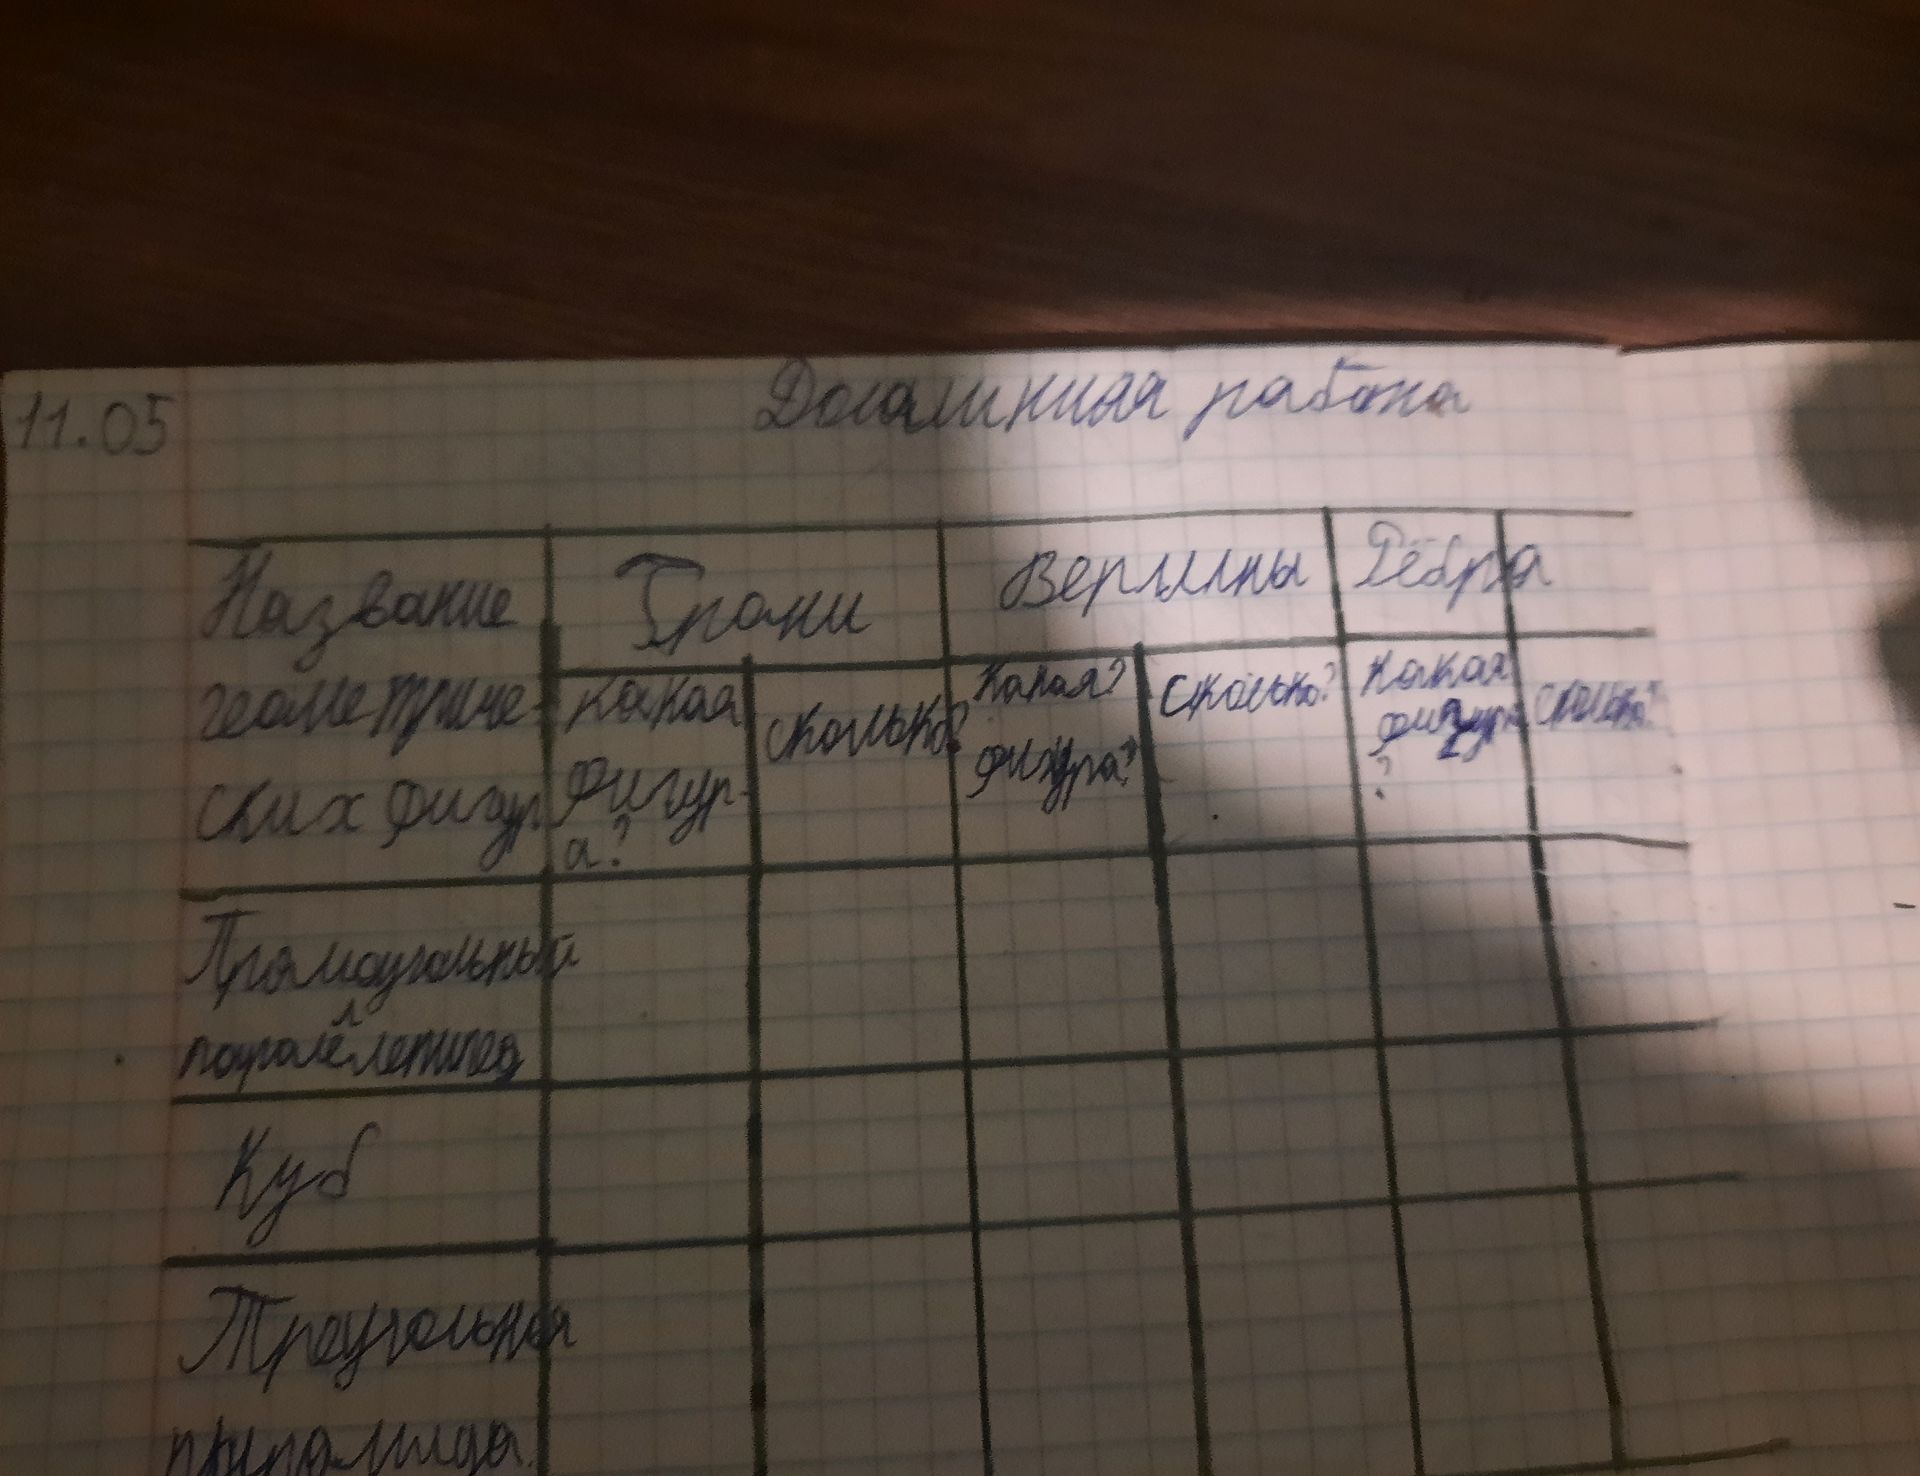 11.05 Домашняя работа
Название Грани Вершины Рёбра
геометриче- какая сколько? какая? сколько? какая сколько?
ских фигур. фигур- фигура? фигура
а? ?
Прямоугольный
параллелепипед
Куб
Треугольная
пирамида.